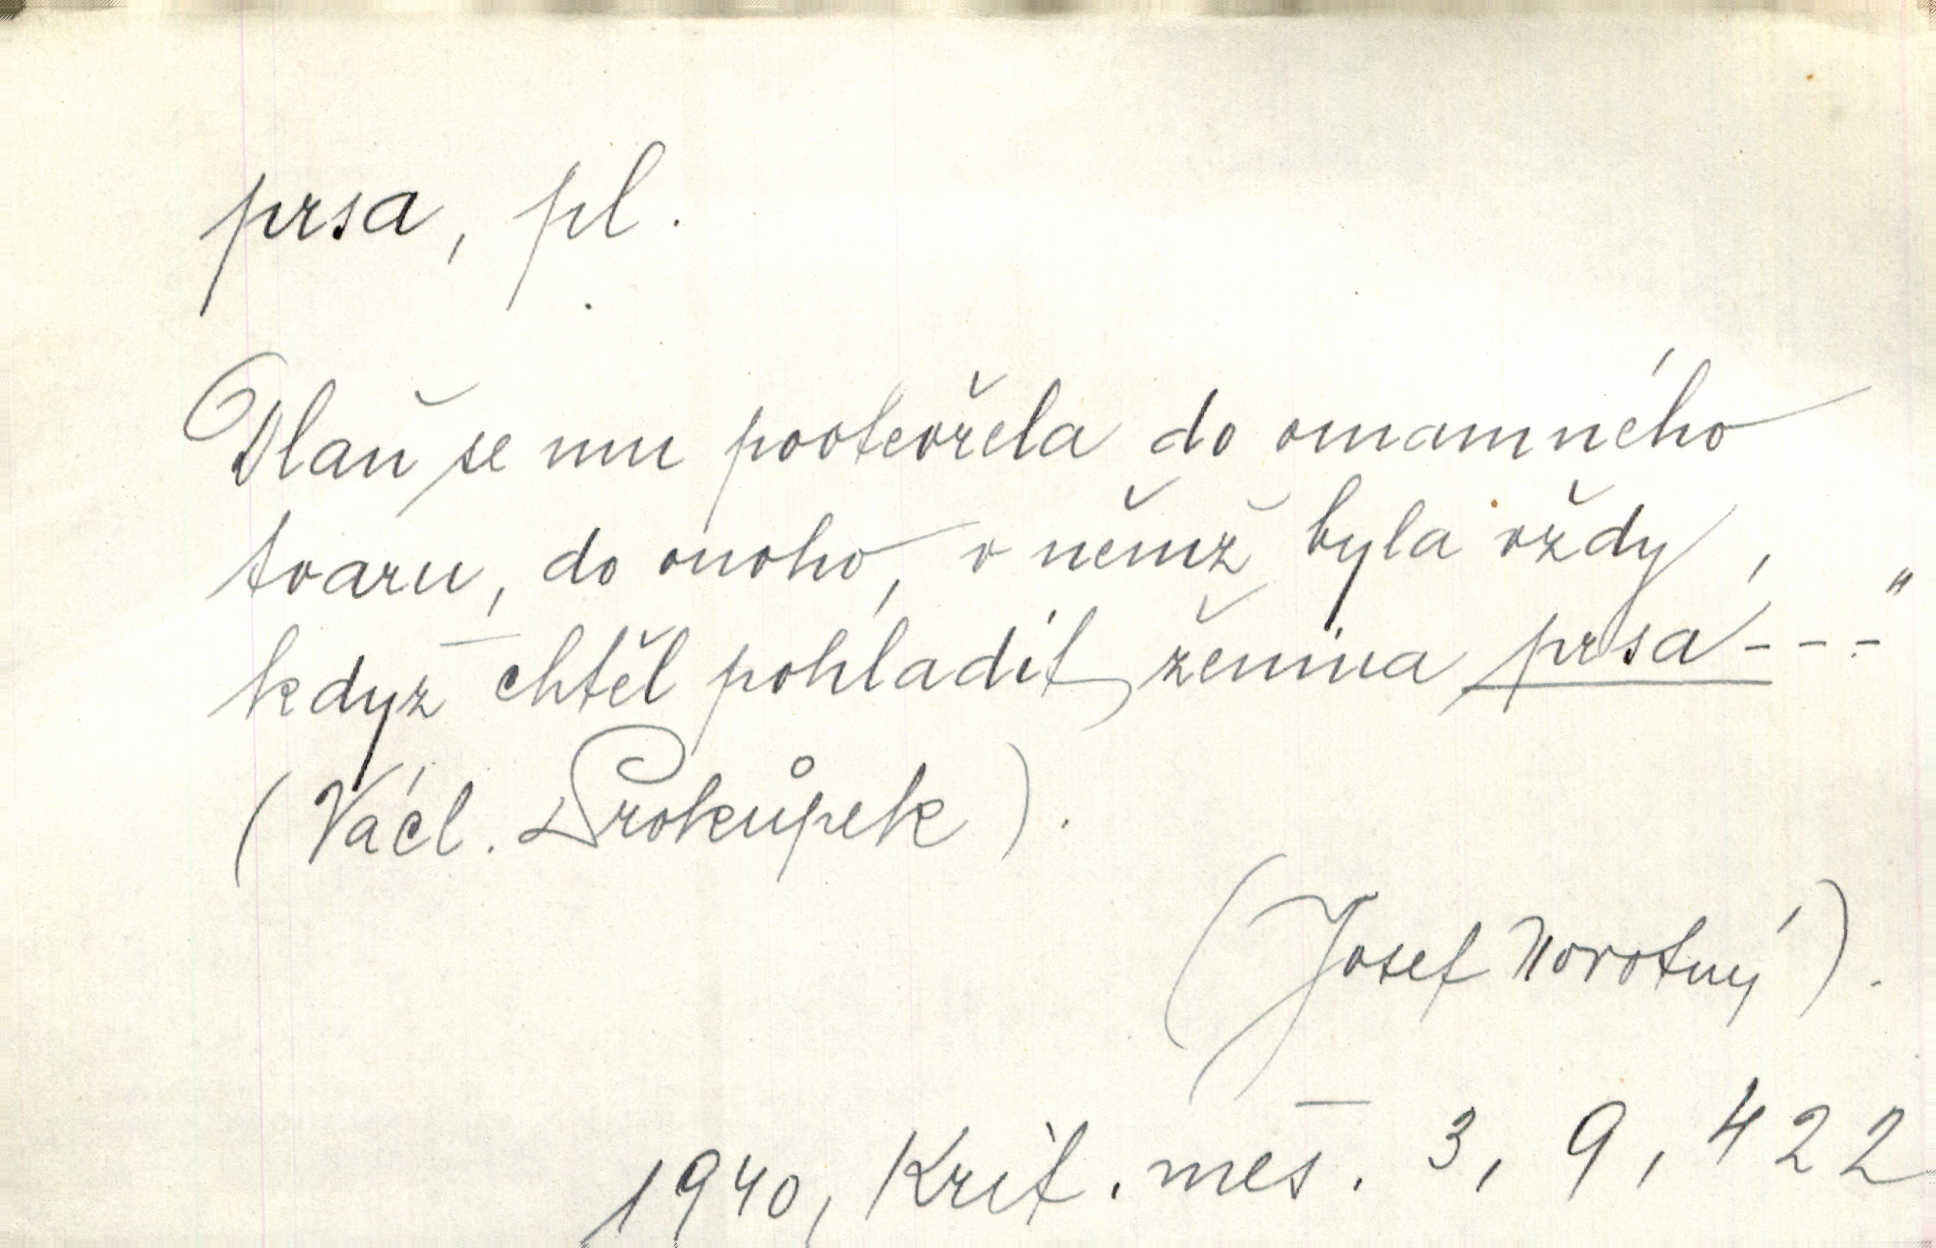 prsa, pl.
Dlaň se mu pootevřela do omamného
tvaru, do onoho, v němž byla vždy,
když chtěl pohladit ženina prsa---"
(Václ. Prokůpek).
(Josef Novotný).
1940, Krit. měs. 3, 9, 422